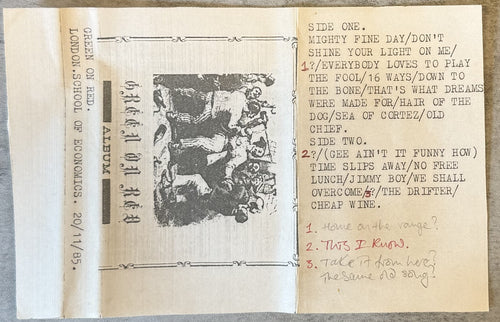 GREEN ON RED.
LONDON.SCHOOL OF ECONOMICS. 20/11/85.
ALBUM
GREEN ON RED
SIDE ONE.
MIGHTY FINE DAY/DON'T
SHINE YOUR LIGHT ON ME/
1?/EVERYBODY LOVES TO PLAY
THE FOOL/16 WAYS/DOWN TO
THE BONE/THAT'S WHAT DREAMS
WERE MADE FOR/HAIR OF THE
DOG/SEA OF CORTEZ/OLD
CHIEF.
SIDE TWO.
2?/(GEE AIN'T IT FUNNY HOW)
TIME SLIPS AWAY/NO FREE
LUNCH/JIMMY BOY/WE SHALL
OVERCOME/3?/THE DRIFTER/
CHEAP WINE.
1. Home on the range?
2. THIS I KNOW.
3. TAKE IT from here?
The same old song?